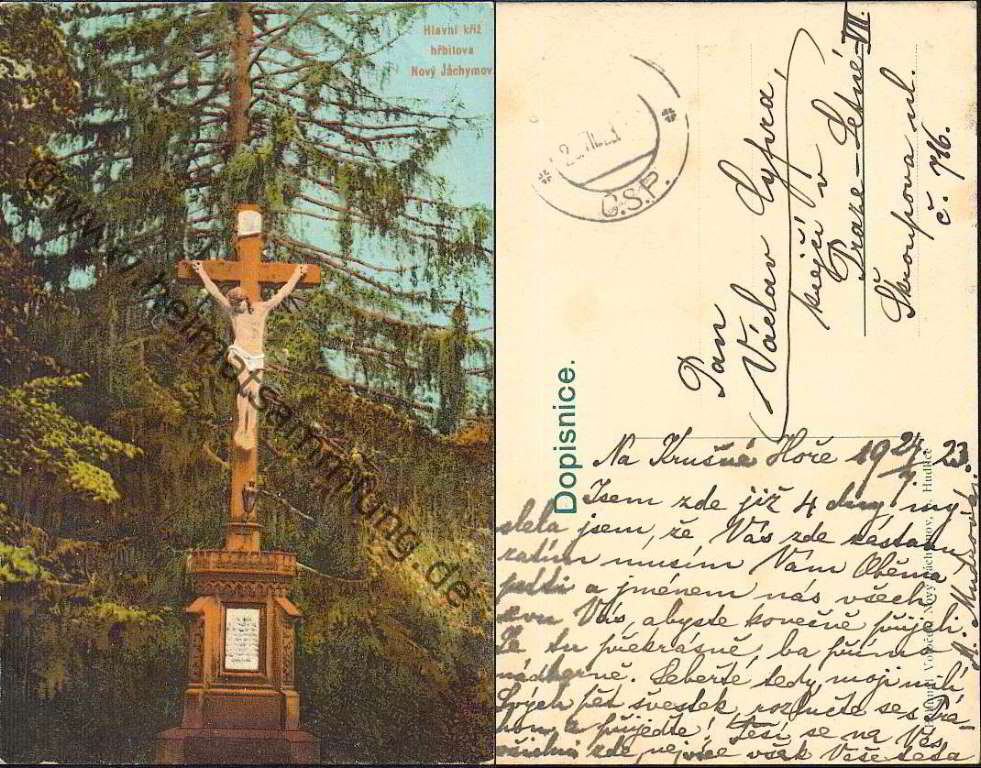 Hlavní kříž
hřbitova
Nový Jáchymov
@www.heimatsammlung.de
Dopisnice.
Č.S.P.
Pan
Václav Cyfra,
krejčí v
Praze-Letné-VII.
Škroupova ul.
č. 716.
Na Krušné Hoře 19 24/7 23.
Jsem zde již 4 dny, my
slela jsem, že Vás zde zastanu
zatím musím Vám Oběma
psáti a jménem nás všech
zvu Vás, abyste konečně přijeli.
Je tu překrásně, ba přímo
nádherně. Seberte tedy, moji milí
svých pět švestek, rozlučte se s Pra-
hou a přijeďte! Těší se na Vás
všichni zde, nejvíce však Vaše teta
Nový Jáchymov, Hudlice